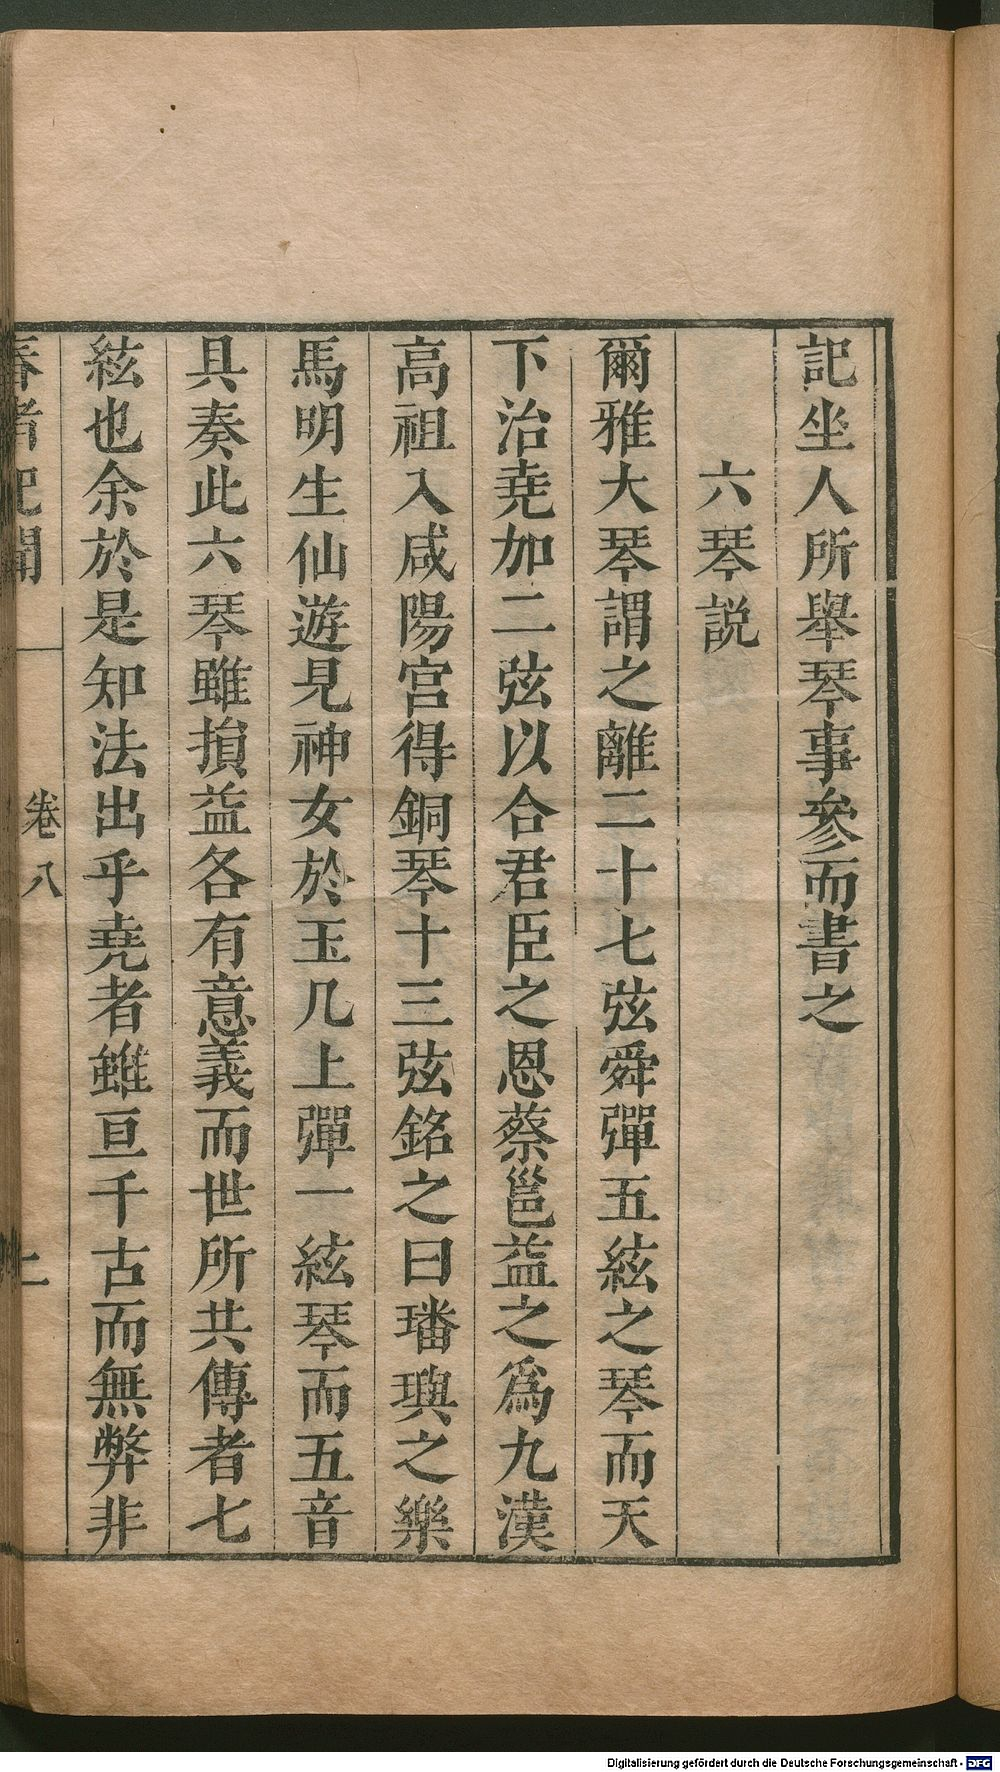 記坐人所舉琴事參而書之
六琴説
爾雅大琴謂之離二十七弦舜彈五絃之琴而天
下治堯加二弦以合君臣之恩蔡邕益之爲九漢
高祖入咸陽宮得銅琴十三弦銘之曰璠璵之樂
馬明生仙遊見神女於玉几上彈一絃琴而五音
具奏此六琴雖損益各有意義而世所共傳者七
絃也余於是知法出乎堯者雖亘千古而無弊非
春渚紀聞 卷八
Digitalisierung gefördert durch die Deutsche Forschungsgemeinschaft - DFG